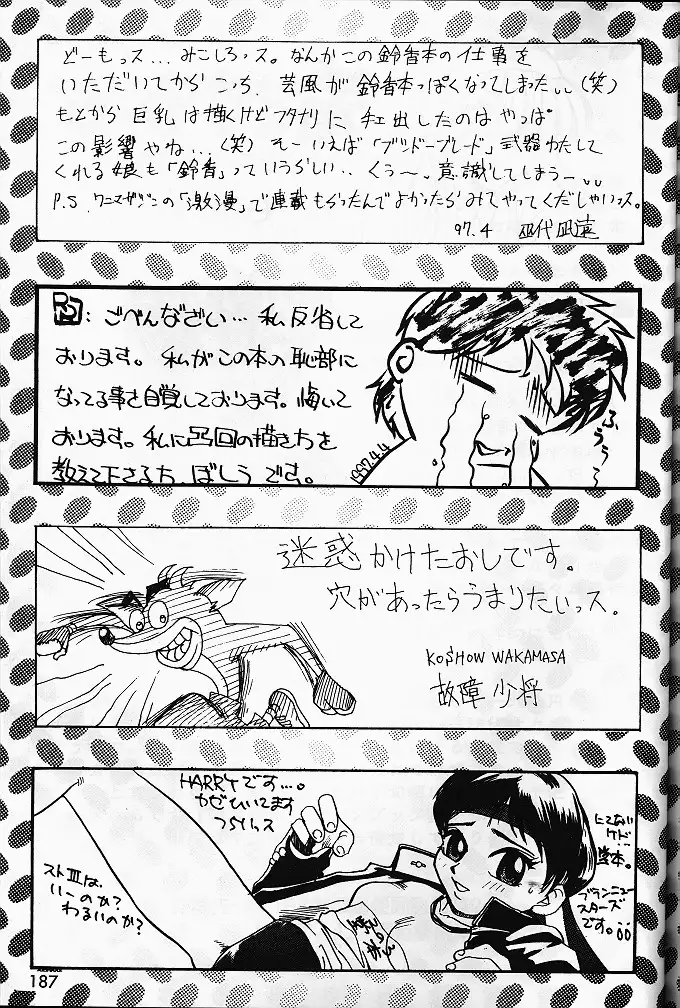 どーもっス…みこしろっス。なんかこの鈴香本の仕事を
いただいてからこっち、芸風が鈴香本っぽくなってしまった（笑）
もとから巨乳は描くけどフタナリに手出したのはやっぱ
この影響やね…（笑）そーいえば「ブシドーブレード」武器わたして
くれる娘も「鈴香」っていうらしい‥くぅ〜、意識してしまうー
P.S. ワニマガジンの「激漫」で連載もらったんでよかったらみてやってくだしゃいっス。
97.4
: ごべんなざい…私反省して
おります。私がこの本の恥部に
なってる事を自覚しております。悔いて
おります。私に凸凹の描き方を
教えて下さる方、ぼしうです。
1997.4.4
ふぅぅ〜
迷惑かけたおしです。
穴があったらうまりたいっス。
KOSHOW WAKAMASA
故障少将
HARRYです…。
かぜひいてます
つらいっス
ストⅢは、
いーのか?
わるいのか?
にてない
ケド
ブランニュー
スターズ
です。
187